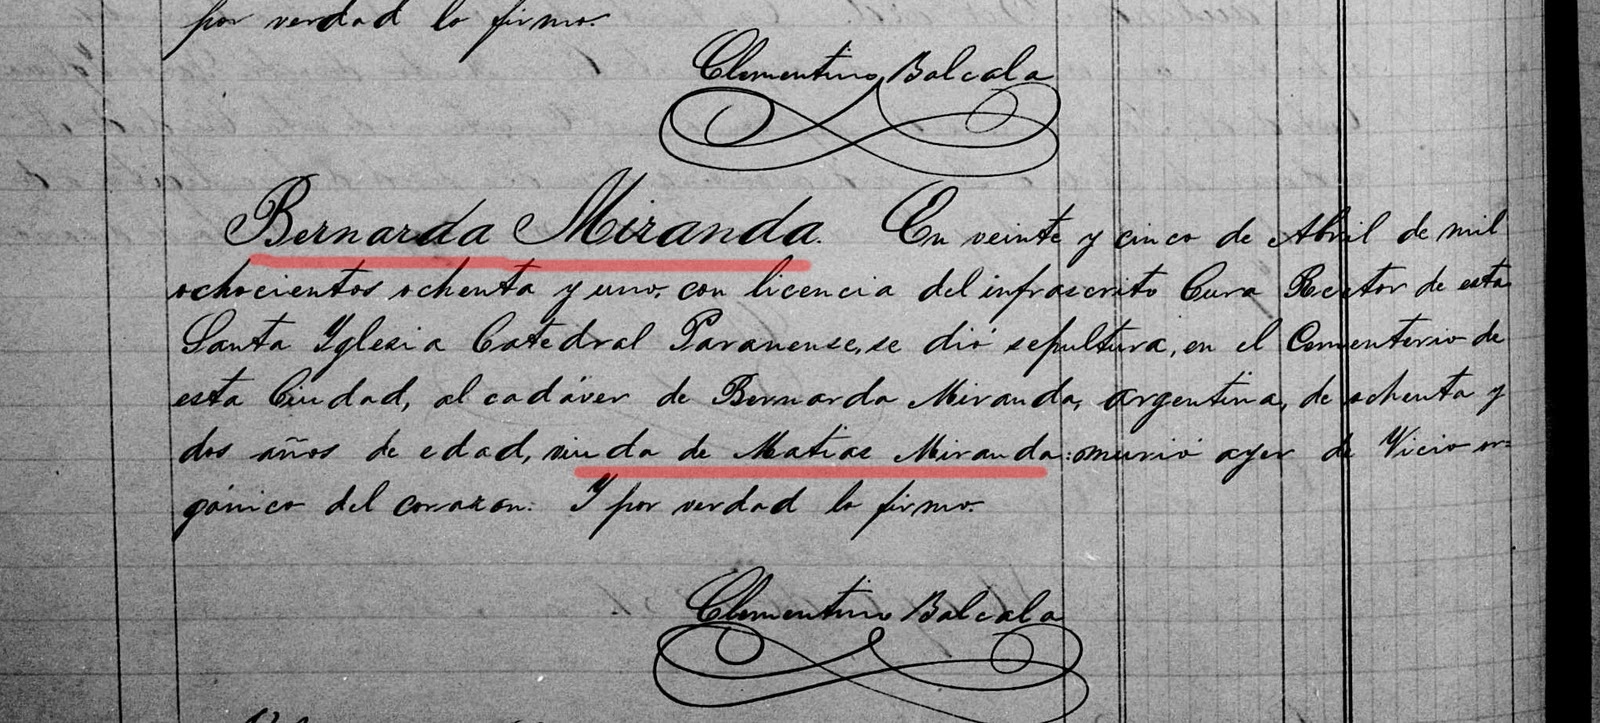 por verdad lo firmo.
Clementino Balcala
Bernarda Miranda. En veinte y cinco de Abril de mil
ochocientos ochenta y uno, con licencia del infrascrito Cura Rector de esta
Santa Yglesia Catedral Paranense, se dió sepultura, en el Cementerio de
esta Ciudad, al cadáver de Bernarda Miranda, argentina, de ochenta y
dos años de edad, viuda de Matias Miranda: murió ayer de Vicio or=
gánico del corazon. Y por verdad lo firmo.
Clementino Balcala